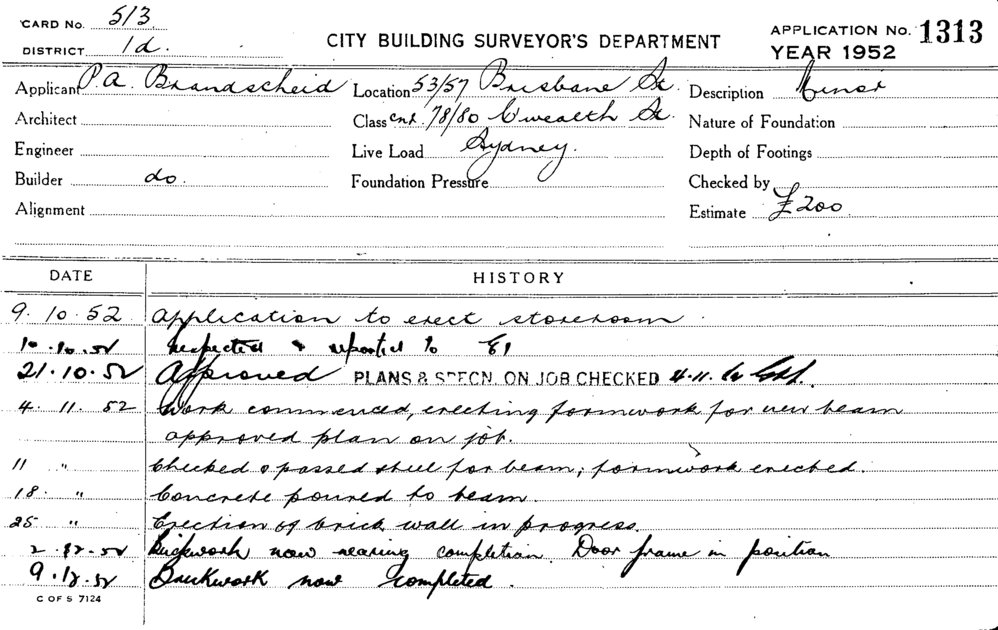 CARD No. 513
DISTRICT 1d.
CITY BUILDING SURVEYOR'S DEPARTMENT
APPLICATION No. 1313
YEAR 1952
Applicant P. A. Brandscheid Location 53/57 Brisbane St. Description Minor
Architect Class cnr. 78/80 C'wealth St. Nature of Foundation
Engineer Live Load Sydney. Depth of Footings
Builder do. Foundation Pressure Checked by
Alignment Estimate £200
DATE HISTORY
9. 10. 52 Application to erect storeroom.
10. 10. 52 Inspected & reported to
21. 10. 52 Approved PLANS & SPECN. ON JOB CHECKED 4.11.
4. 11. 52 Work commenced, erecting formwork for new beam
approved plan on job.
11 " Checked & passed steel for beam; formwork erected.
18. " Concrete poured to beam.
25 " Erection of brick wall in progress.
2. 12. 52 Brickwork now nearing completion Door frame in position
9. 12. 52 Brickwork now completed.
C OF S 7124